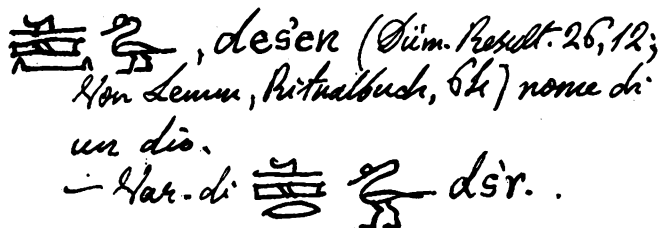 , dešen (Düm. Result. 26,12;
Von Lemm, Ritualbuch, 64) nome di
un dio.
— Var. di dšr. .